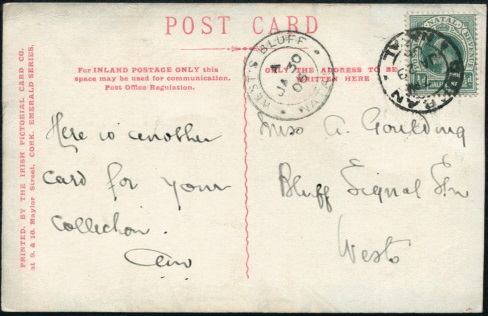 POST CARD
For INLAND POSTAGE ONLY this
space may be used for communication.
Post Office Regulation.
ONLY THE ADDRESS TO BE
WRITTEN HERE
PRINTED BY THE IRISH PICTORIAL CARD CO.
at 9. & 10. Maylor Street, CORK. EMERALD SERIES.
Here is another
card for your
collection.
Miss A. Goulding
Bluff Signal Stn
Wests
WEST'S BLUFF
A
JA 30
06
NATAL